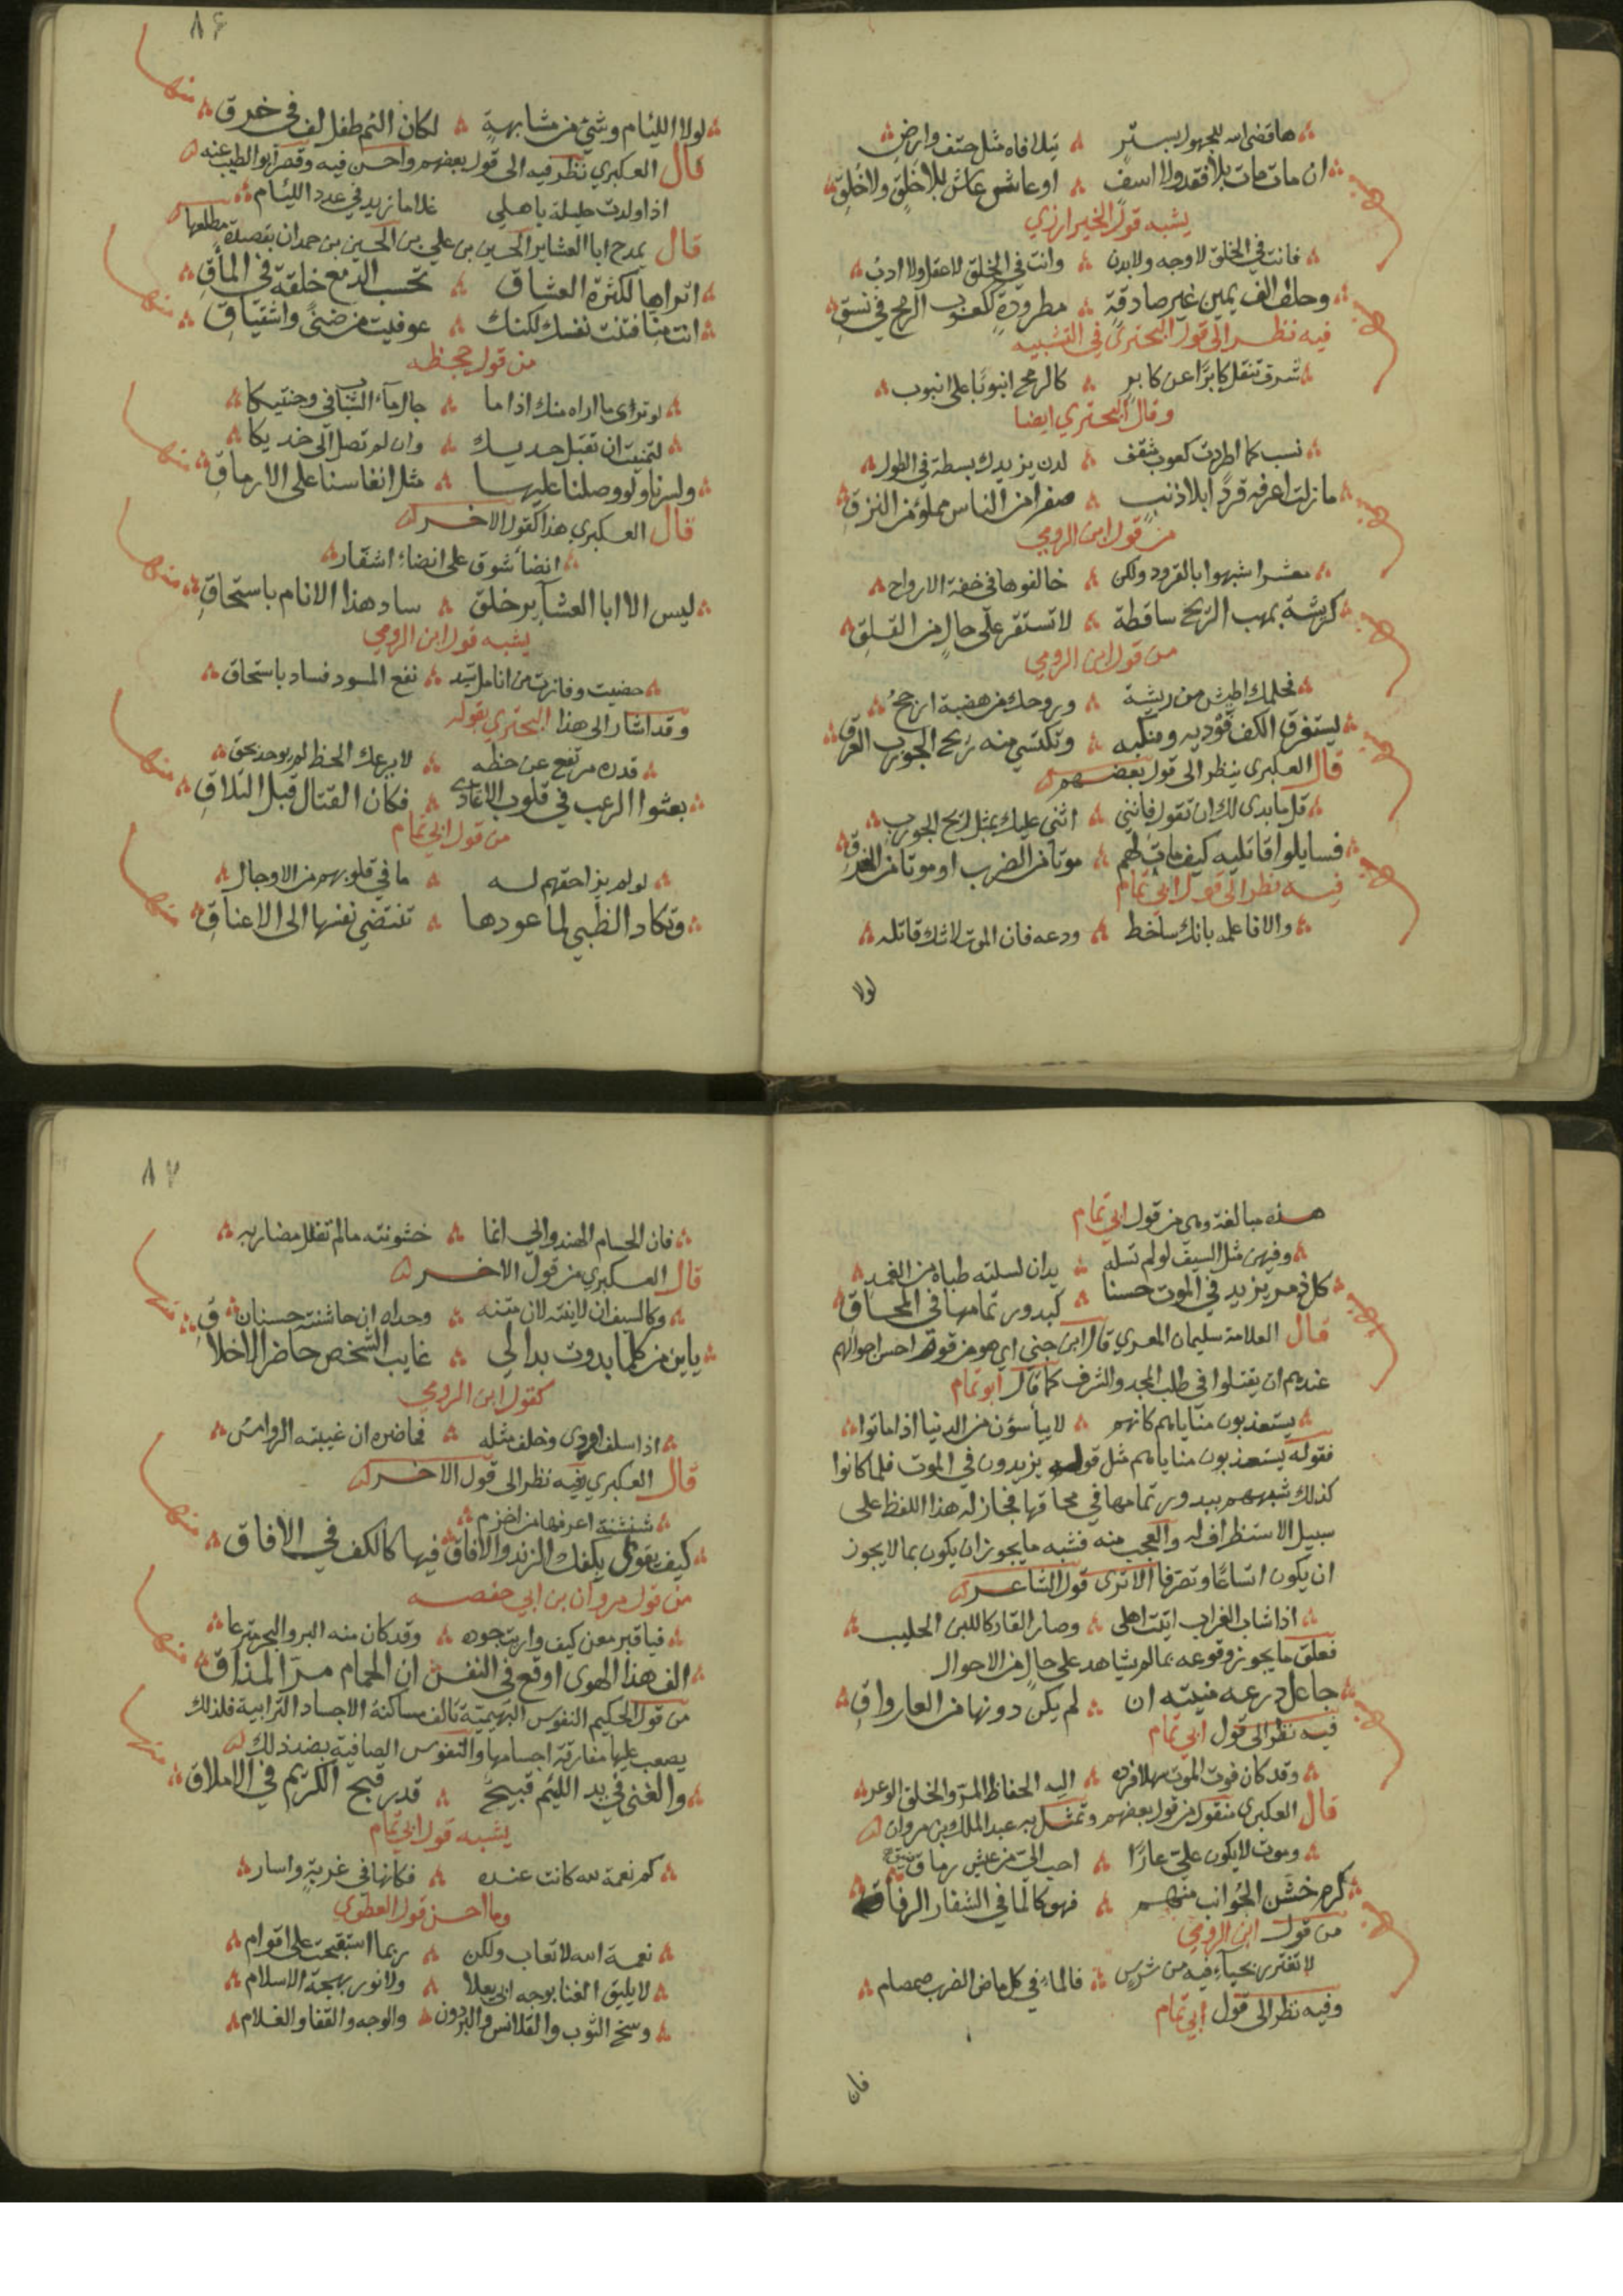 ها قضى الله للجهول بستر ۞ يتلافاه مثل حتف وارض
ان مات مات بلا فقد ولا اسف ۞ او عاش عاش بلا خلق ولا خلق
يشبه قول الخبز ارزي
فانت في الخلق لا وجه ولا بدن ۞ وانت في الخلق لا عقل ولا ادب
وحلف الف يمين غير صادقة ۞ مطرودة ككعوب الرمح في نسق
فيه نظر الى قول البحتري في التشبيه
شرف تنقل كابرا عن كابر ۞ كالرمح انبوبا على انبوب
وقال البحتري ايضا
نسب كما اطردت كعوب مثقف ۞ لدن يزيدك بسطة في الطول
ما زلت اعرفه قردا بلا ذنب ۞ صفرا من الناس مملوء من النزق
من قول ابن الرومي
معشر اشبهوا بالقرود ولكن ۞ خالفوها في خفة الارواح
كريشة بمهب الريح ساقطة ۞ لا تستقر على حال من القلق
من قول ابن الرومي
فحلمك اطيش من ريشة ۞ وروحك من هضبة ارجح
يستغرق الكف فوديه ومنكبه ۞ وتكتسي منه ريح الجورب العرق
قال العكبري ينظر الى قول بعضهم
قل ما بدى لك ان تقول فانني ۞ اثني عليك بمثل ريح الجورب
فسايلوا قاتليه كيف مات لهم ۞ موتا من الضرب او موتا من الفرق
فيه نظر الى قول ابي تمام
والا فاعلمه بانك ساخط ۞ ودعه فان الموت لا شك قاتله
لولا
٨٦
لولا الليئام وشيئ من مشابهة ۞ لكان الئم طفل لف في خرق
منها
قال العكبري نظر فيه الى قول بعضهم واحسن فيه وقصر ابو الطيب عنه
اذا ولدت حليلة باهلي غلاما زيد في عدد الليئام
قال يمدح ابا العشاير الحسين بن علي بن الحسين بن حمدان بقصيدة مطلعها
اتراها لكثرة العشاق ۞ تحسب الدمع خلقة في المآق
انت منا فتنت نفسك لكنك ۞ عوفيت من ضنى واشتياق
منها
من قول جحظه
لو ترى ما اراه منك اذا ما ۞ جال ماء الشباب في وجنتيكا
لتمنيت ان تقبل خديك ۞ وان لم تصل الى خديكا
ولسرنا ولو وصلنا عليها ۞ مثل انفاسنا على الارماق
منها
قال العكبري هذا كقول الاخر
انضاء شوق على انضاء اشفار
ليس الا ابا العشاير خلق ۞ ساد هذا الانام باستحاق
منها
يشبه قول ابن الرومي
نفع المسود فساد باستحاق
وقد اشار الى هذا البحتري بقوله
قدره مرتفع عن حظه ۞ لا يرعك الحظ لم يوجد بحق
بعثوا الرعب في قلوب الاعادي ۞ فكان القتال قبل التلاق
منها
من قول ابي تمام
لو لم يزاحفهم لزاحفهم له ۞ ما في قلوبهم من الاوجال
وتكاد الظبي لما عودها ۞ تنتضي نفسها الى الاعناق
منها
هذه مبالغة وهي من قول ابي تمام
وفيهن مثل السيف لو لم تسله ۞ يدان لسلته ظباه من الغمد
كل ذمر يزيد في الموت حسنا ۞ كبدور تمامها في المحاق
قال العلامة سليمان المعري قال ابن جني اي هو من قوم احسن احوالهم
عندهم ان يقتلوا في طلب المجد والشرف كما قال ابو تمام
يستعذبون مناياهم كانهم ۞ لا ييأسون من الدنيا اذا ماتوا
فقوله يستعذبون مناياهم مثل قوله يزيدون في الموت فلما كانوا
كذلك شبههم ببدور تمامها في محاقها فجاز له هذا اللفظ على
سبيل الاستظراف له والعجب منه فشبه ما يجوز ان يكون بما لا يجوز
ان يكون اتساعا وتصرفا الا ترى قول الشاعر
اذا شاب الغراب اتيت اهلي ۞ وصار القار كاللبن الحليب
فعلق ما يجوز وقوعه بما لم يشاهد على حال من الاحوال
جاعل درعه منيته ان ۞ لم يكن دونها من العار واق
فيه نظر الى قول ابي تمام
وقد كان فوت الموت سهلا فرده ۞ اليه الحفاظ المر والخلق الوعر
قال العكبري منقول من قول بعضهم وتمثل به عبد الملك بن مروان
وموت لا يكون علي عارا ۞ احب الي من عيش رماق
كرم خشن الجوانب منهم ۞ فهو كالما في الشفار الرقاق
من قول ابن الرومي
لا تغترر بحياء فيه من شرس ۞ فالماء في كل ماض الضرب صمصام
وفيه نظر الى قول ابي تمام
فان
٨٧
فان الحسام الهندواني انما ۞ خشونته ما لم تفلل مضاربه
قال العكبري من قول الاخر
وكالسيف ان لاينته لان متنه ۞ وحداه ان خاشنته خشنان
يا بن من كلما بدوت بدا لي ۞ غايب الشخص حاضر الاخلاق
منها
كقول ابن الرومي
اذا سلف اودى وخلف مثله ۞ فما ضره ان غيبته الروامس
قال العكبري فيه نظر الى قول الاخر
شنشنة اعرفها من اخزم
كيف يقوى بكفك الزند والافاق فيها كالكف في الافاق
منها
من قول مروان بن ابي حفصه
فيا قبر معن كيف واريت جوده ۞ وقد كان منه البر والبحر مترعا
الف هذا الهوى اوقع في النفس ان الحمام مر المذاق
منها
من قول الحكيم النفوس البهيمية تالف مساكنة الاجساد الترابية فلذلك
يصعب عليها مفارقة اجسامها والنفوس الصافية بضد ذلك
والغنى في يد الليئم قبيح ۞ قدر قبح الكريم في الاملاق
منها
يشبه قول ابي تمام
كم نعمة لله كانت عنده ۞ فكانها في غربة واسار
وما احسن قول العطوي
نعمة الله لا تعاب ولكن ۞ ربما استقبحت على اقوام
لا يليق الغنا بوجه ابي يعلا ۞ ولا نور بهجة الاسلام
وسخ الثوب والقلانس والبرذون ۞ والوجه والقفا والغلام